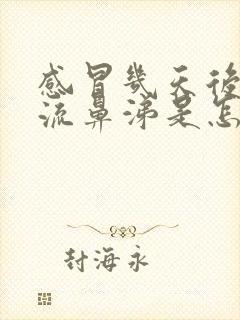 感冒幾天後
流鼻涕是怎
封海永